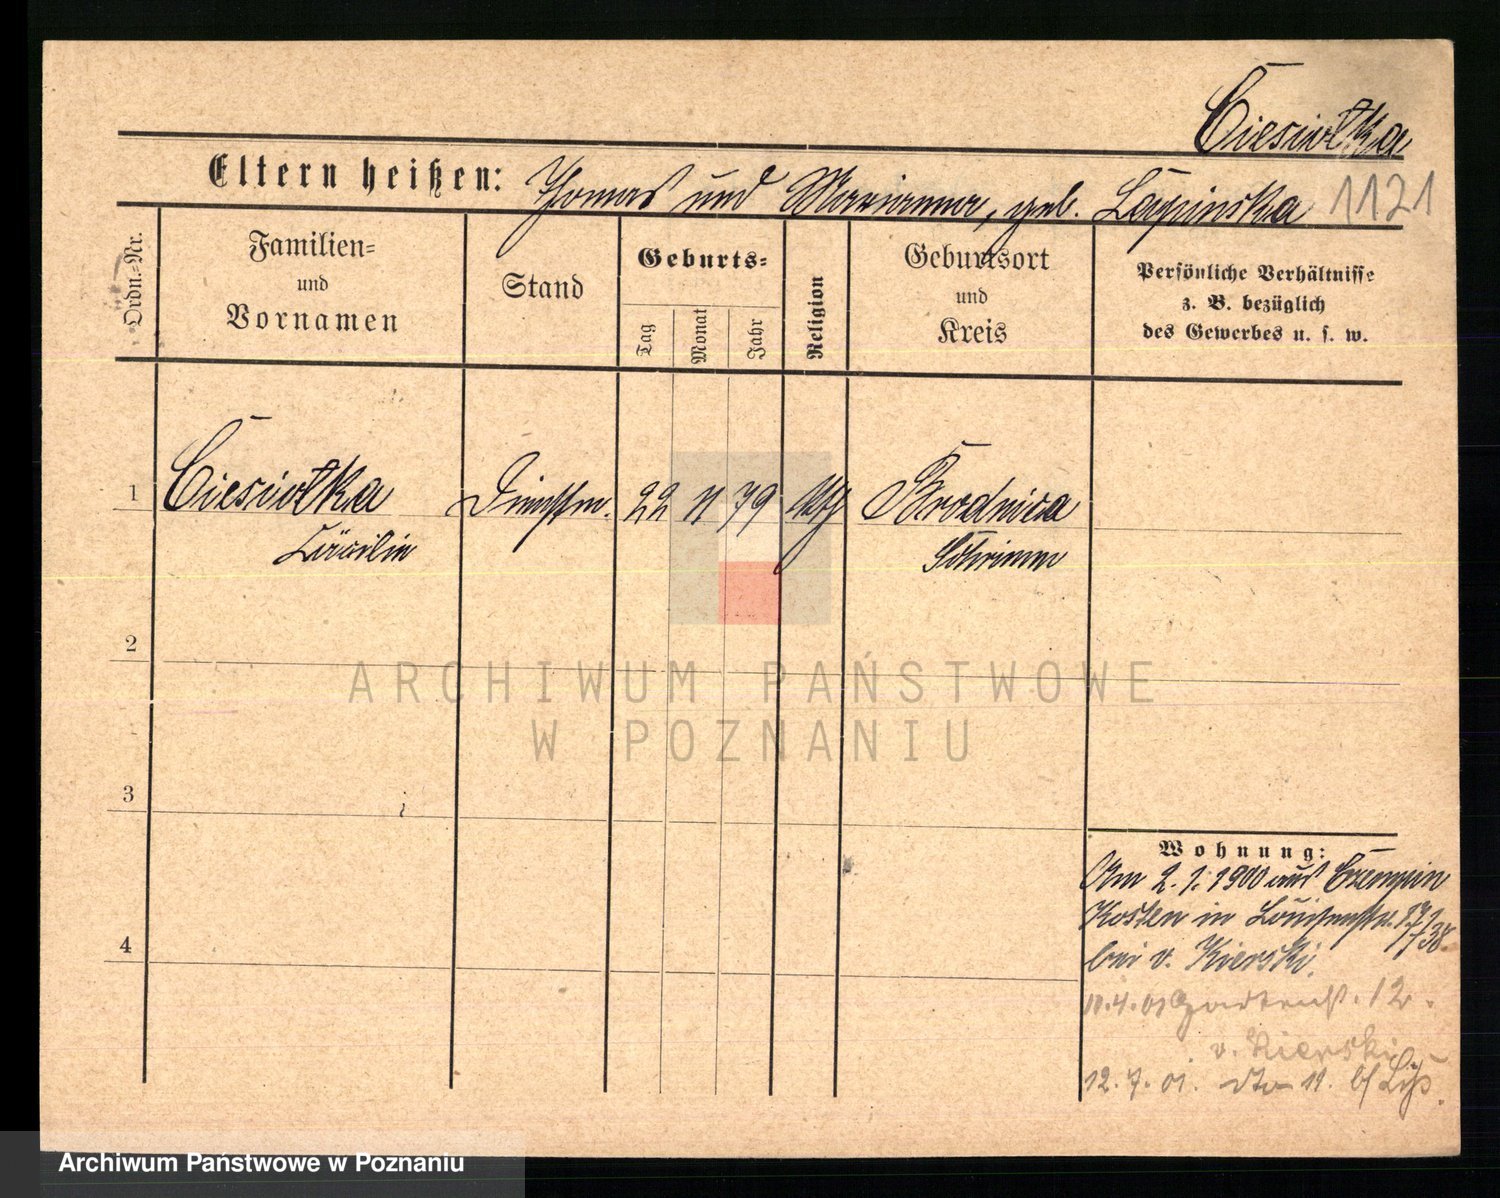 Ciesiołka
Eltern heißen: Thomas und Marianna, geb. Łapinska 1121
Ordn.-Nr.
Familien-
und
Vornamen
Stand
Geburts-
Tag
Monat
Jahr
Religion
Geburtsort
und
Kreis
Persönliche Verhältnisse
z. B. bezüglich
des Gewerbes u. s. w.
1 Ciesiołka Dienstm. 22 11 79 Brodnica
Cäcilie Schrimm
2
3
4
ARCHIWUM PAŃSTWOWE
W POZNANIU
Wohnung:
Am 2. 1. 1900 aus Czempin
Kosten in Louisenstr.
bei v. Kierski.
10.4.01 12.
v. Kierski
12.7.01. dto 11.
Archiwum Państwowe w Poznaniu